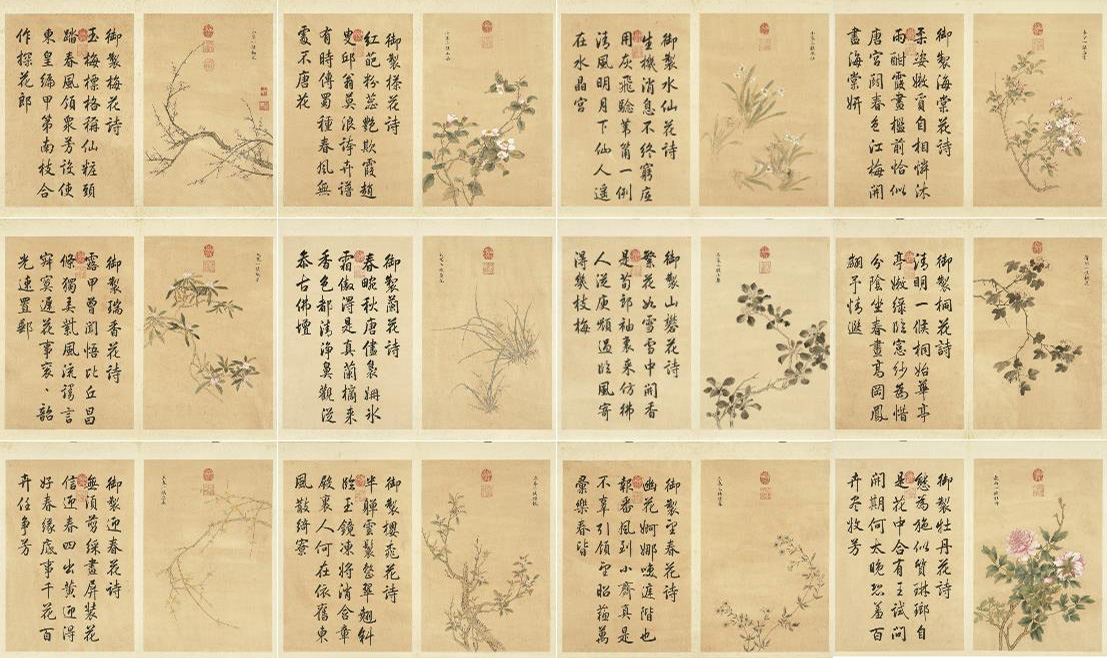 御製梅花詩
玉梅標格稱仙粧頭
踏春風領衆芳設使
東皇編甲第南枝合
作探花郎
御製搽花詩
紅葩粉蕊艷欺霞趙
叟邱翁莫浪誇卉譜
有時傳蜀種春風無
處不唐花
御製水仙花詩
生機消息不終窮底
用灰飛驗葦筩一例
清風明月下仙人遥
在水晶宮
御製海棠花詩
柔姿嫩質自相憐沐
雨酣霞畫檻前恰似
唐宮閟春色江梅開
盡海棠妍
御製瑞香花詩
露甲曾聞悟比丘昌
條獨美紫風流謾言
寞遲花事衮衮韶
光連置郵
御製蘭花詩
春畹秋唐儘裊姍氷
霜傲得是真蘭擒来
香色都清浄鼻觀從
叅古佛壇
御製山礬花詩
繁花如雪雪中開香
是荀郎袖裏来仿彿
人從庾嶺過臨風寄
得幾枝梅
御製桐花詩
清明一候桐始華亭
亭嫩緑臨窓紗為惜
分陰坐春晝高岡鳳
翽予情
御製迎春花詩
無須剪綵畫屏裝花
信迎春四出黄迎得
好春縁底事千花百
卉任爭芳
御製櫻桃花詩
半嚲雲鬟翠翹斜
臨玉鏡凍將消含章
殿裏人何在依舊東
風散綺寮
御製望春花詩
幽花婀娜暎階也
報番風到小齋真是
不辜引領望昭蘇萬
彙樂春皆
御製牡丹花詩
為施似質琳瑯自
是花中合有王試問
開期何太晚恐羞百
卉冬牧芳